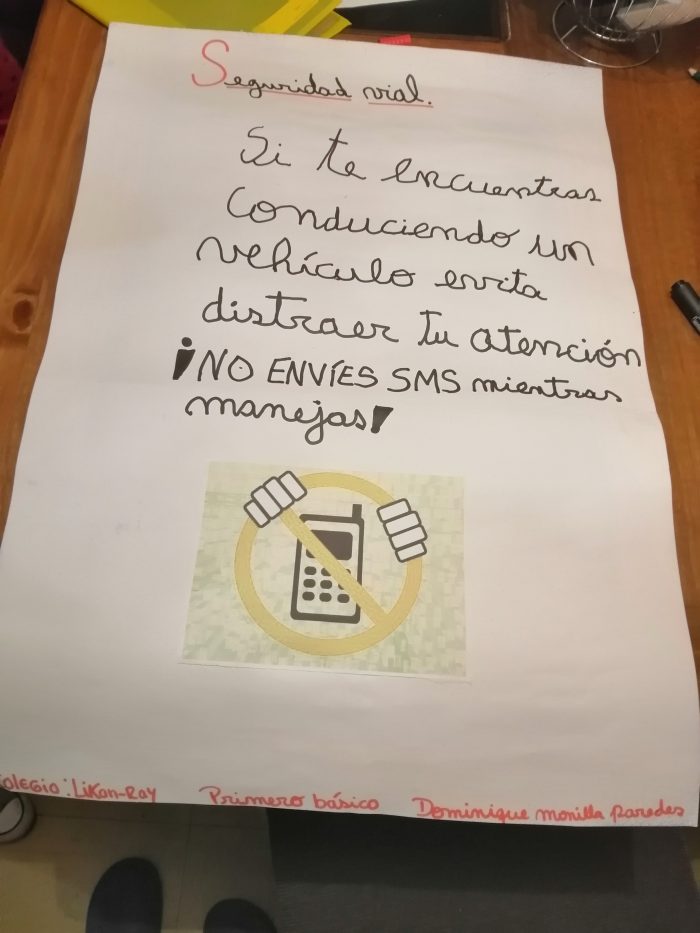 Seguridad vial.
Si te encuentras
Conduciendo un
vehículo evita
distraer tu atención
¡NO ENVÍES SMS mientras
manejas!
olegio: Likan-Ray Primero básico Dominique monilla paredes